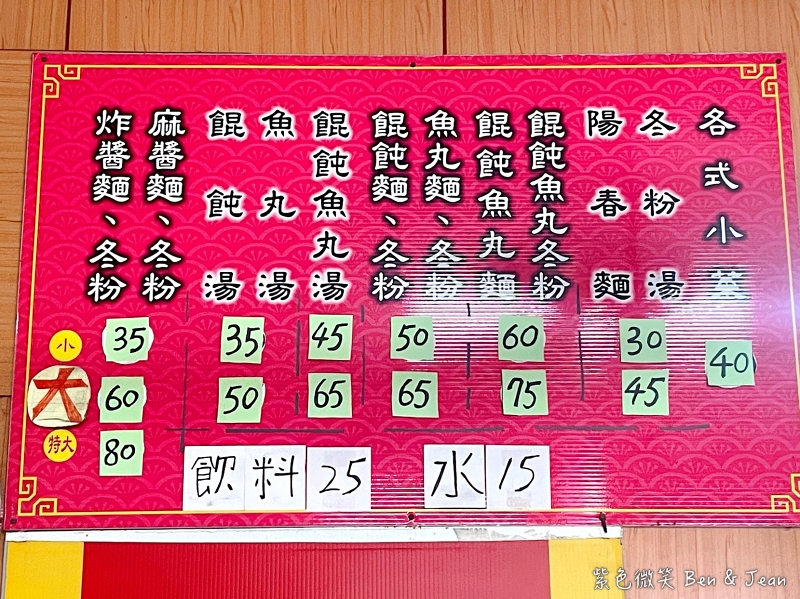 各式小菜
冬粉湯
陽春麵
餛飩魚丸冬粉
餛飩魚丸麵
魚丸麵、冬粉
餛飩麵、冬粉
餛飩魚丸湯
魚丸湯
餛飩湯
麻醬麵、冬粉
炸醬麵、冬粉
小 35 35 45 50 60 30 40
大 60 50 65 65 75 45
特大 80
飲料25 水15
紫色微笑 Ben & Jean